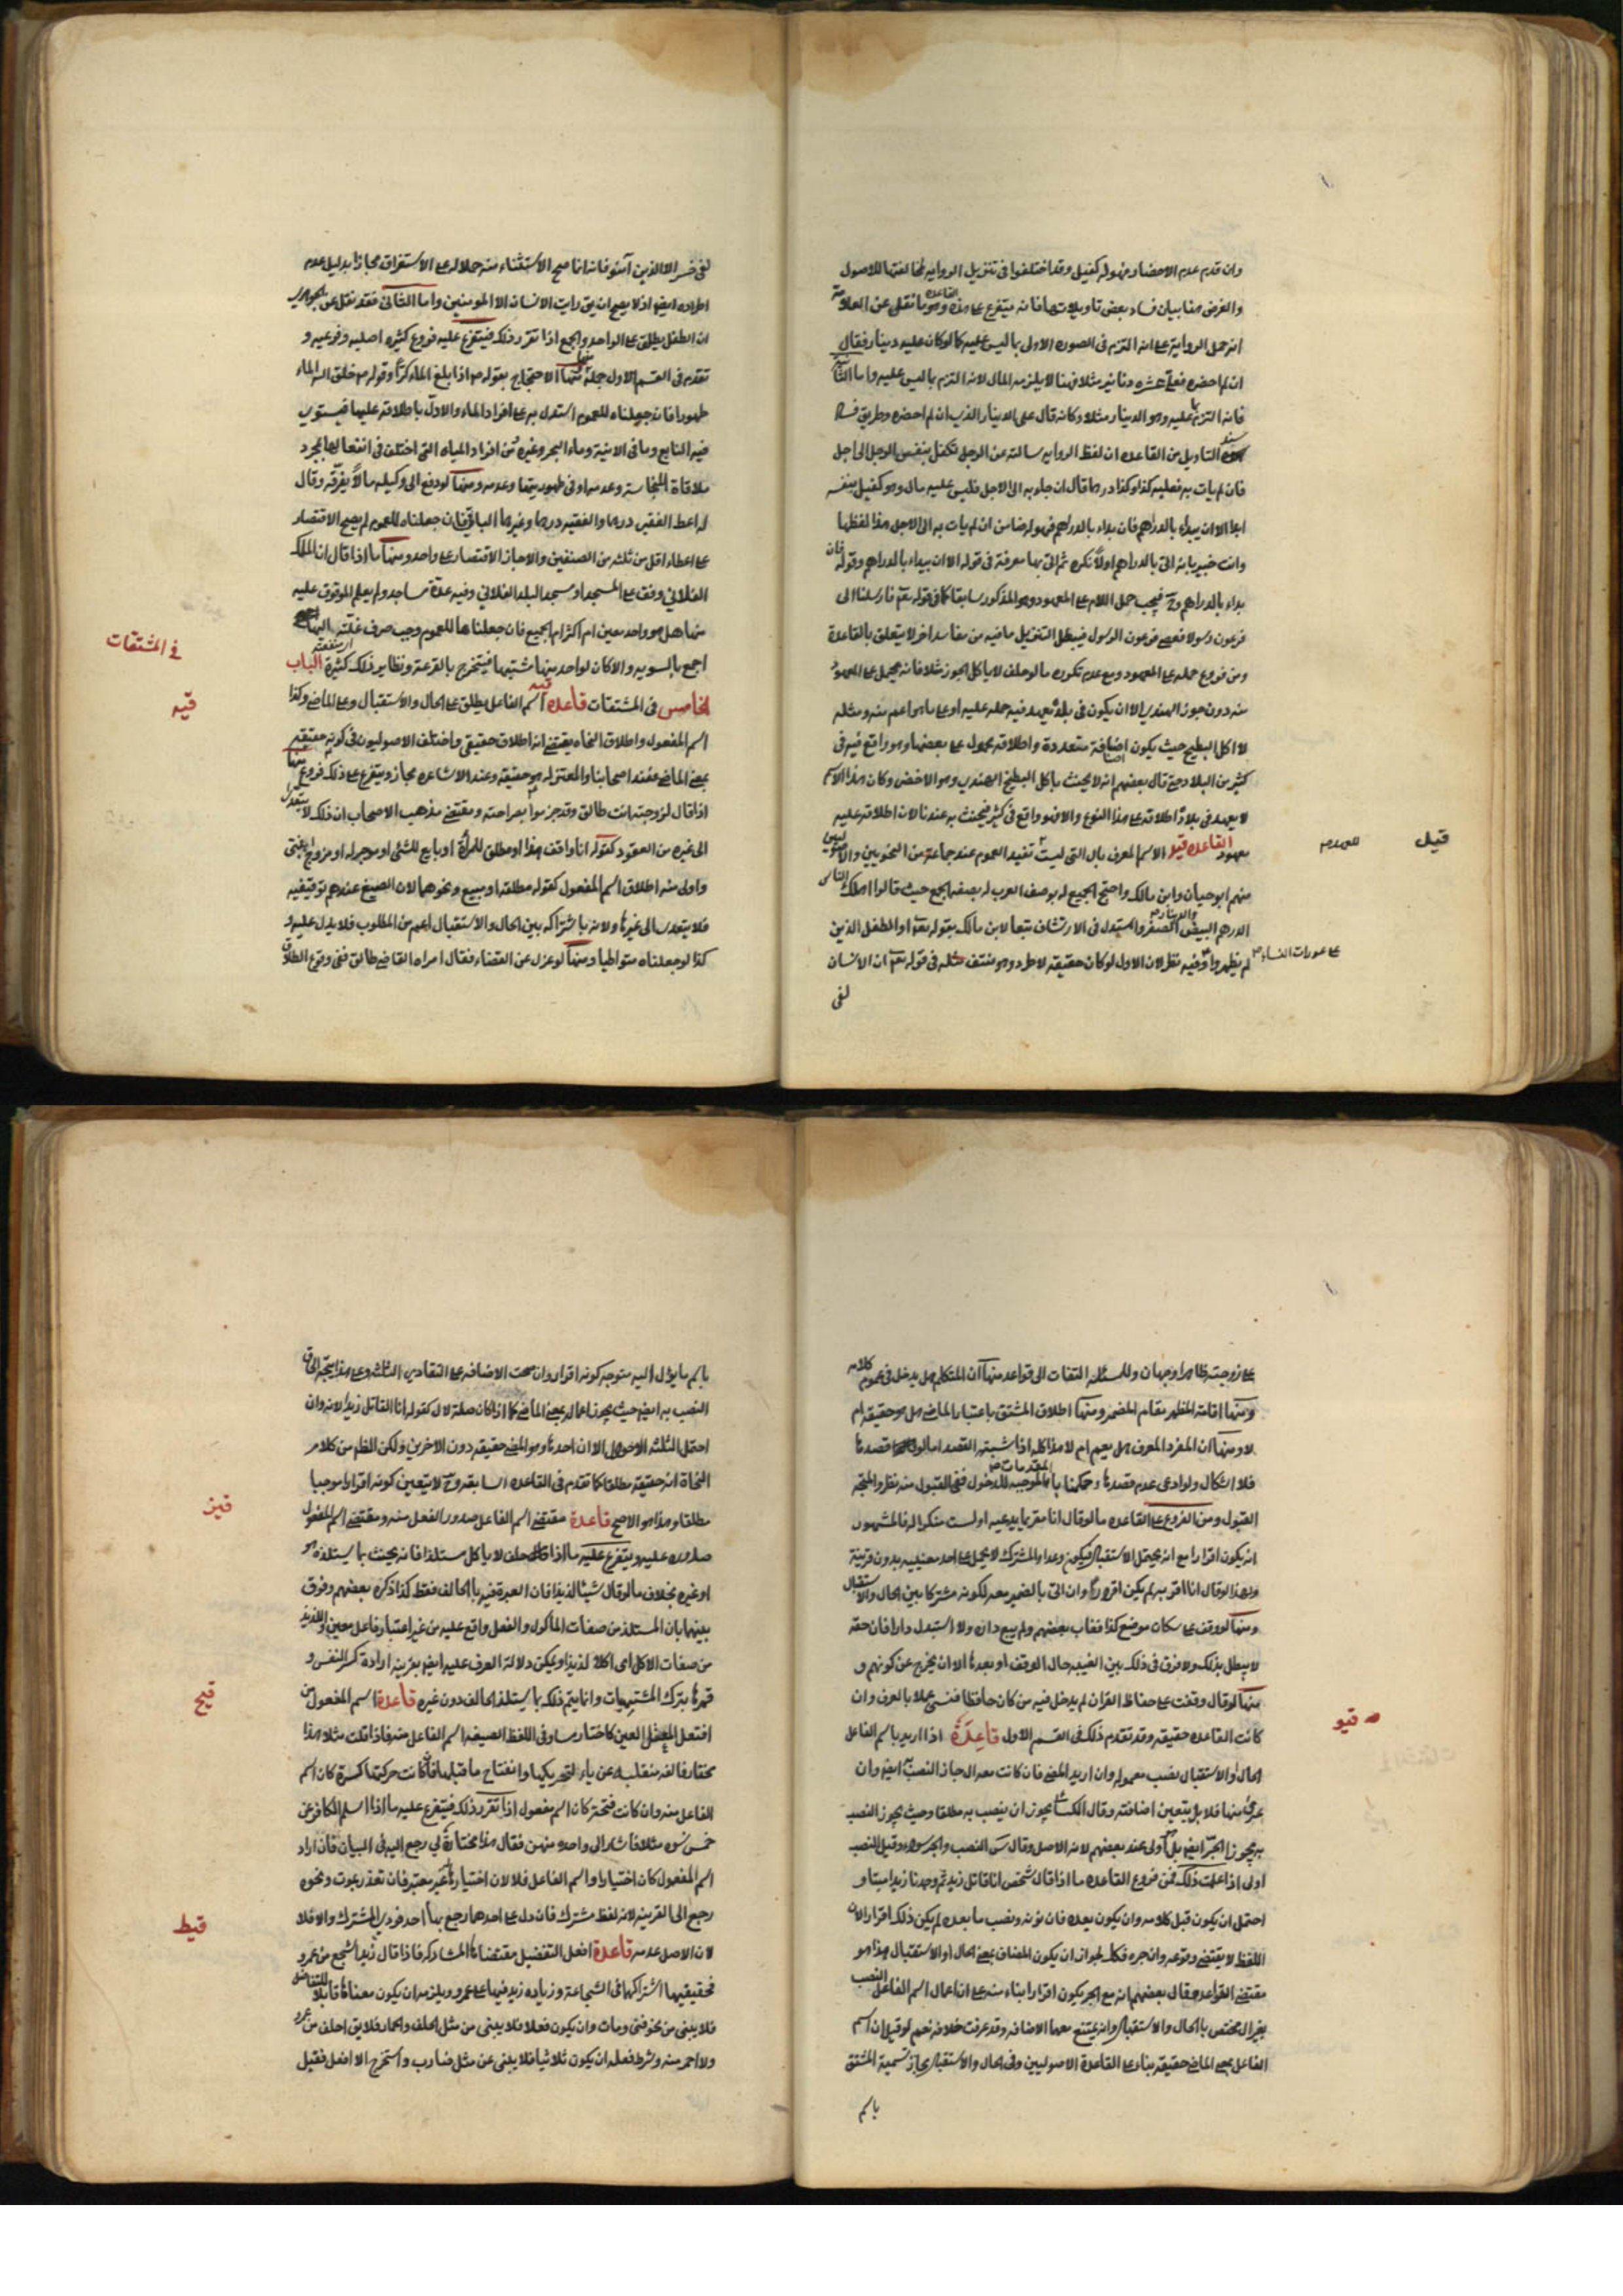 وان قدم عدم الاحضار فهو له كفيل وقد اختلفوا فى تنزيل الرواية لمخالفتها للاصول
والغرض هنا بيان فساد بعض تاويلاتها فانه يتفرع على هذه القاعدة وهو ما نقل عن العلامة
انه حمل الرواية على انه التزم فى الصورة الاولى بما ليس عليه كما لو كان عليه دينار فقال
ان لم احضره فعلى عشرة دنانير مثلا فهنا لا يلزمه المال لانه التزم بما ليس عليه واما الثانية
فانه التزم بما عليه وهو الدينار مثلا وكانه قال على الدينار الذى ان لم احضره وطريق فساد
هذه التاويل من القاعده ان لفظ الروايه سالته عن الرجل تكفل بنفس الرجل الى اجل
فان لم يات به فعليه كذا وكذا درهما قال ان جاء به الى الاجل فليس عليه مال وهو كفيل بنفسه
ابدا الا ان يبداء بالدراهم فان بداء بالدراهم فهو له ضامن ان لم يات به الى الاجل هذا لفظها
وانت خبير بانه اتى بالدراهم اولا نكره ثم اتى بها معرفة فى قوله الا ان يبداء بالدراهم وقوله فان
بداء بالدراهم وح فيجب حمل اللام على المعهود وهو المذكور سابقا كما فى قوله تعم فارسلنا الى
فرعون رسولا فعصى فرعون الرسول فيبطل التنزيل مافيه من مفاسد اخر لا يتعلق بالقاعدة
ومن فروع حمله على المعهود ومع عدم تكوره مالو حلف لا ياكل الجوز مثلا فانه يحمل على المعهود
منه دون جوز الهندى الا ان يكون فى بلد يعهد فيه حمله عليه او على ما هو اعم منه ومثله
لا اكل البطيخ حيث يكون اصنافه متعددة واطلاقه محمول على بعضها وهو واقع فيه فى
كثير من البلاد حتى قال بعضهم انه لا يحنث باكل البطيخ الهندى وهو الاخضر وكان هذا الاسم
لا يعهد فى بلاد اطلاقه على هذا النوع والا فهو واقع فى كثير فيحنث به عندنا لان اطلاقه عليه
معهود القاعده قيد الاسم المعرف بال التى ليست تفيد العموم عند جماعة من النحويين والاصوليين
منهم ابو حيان وابن مالك واحتج الجميع له بوصف العرب له بصفه الجمع حيث قالوا اهلك الناس
الدرهم البيض والدينار الصفر واستدل فى الارتشاف تبعا لابن مالك بقوله تعم او الطفل الذين
لم يظهروا وفيه نظر لان الاول لو كان حقيقه لاطرد وهو منتف مثله فى قوله تعم ان الانسان
لفى
على عورات النساء
قيل
للعموم
لفى خسر الا الذين آمنوا فانه انما صح الاستثناء منه حملا له على الاستغراق مجازا بدليل عدم
اطراده ايضا اذ لا يصح ان يق رايت الانسان الا المومنين واما الثانى فقد نقل عن الجوهرى
ان الطفل يطلق على الواحد والجمع اذا تقرر ذلك فيتفرع عليه فروع كثيره اصليه وفرعيه و
تقدم فى القسم الاول جملة منها منها الاحتجاج بقوله ص اذا بلغ الماء كرا وقوله ص خلق الله الماء
طهورا فان جعلناه للعموم استدل به على افراد الماء والاول باطلاقه عليها فيستوى
فيه النابع وما فى الانية وماء البحر وغيره من افراد المياه التى اختلف فى انفعالها بمجرد
ملاقاة النجاسة وعدمه او فى طهوريتها وعدمه ومنها لو دفع الى وكيله مالا يفرقه وقال
له اعط الفقير درهما والفقيه درهما وغيرهما الباقى فان جعلناه للعموم لم يصح الاقتصار
على اعطاء اقل من ثلثه من الصنفين والا جاز الاقتصار على واحد ومنها ما اذا قال ان الملك
الفلانى وقف على المسجد او مسجد البلد الفلانى وفيه عدة مساجد ولم يعلم الموقوف عليه
منها هل هو واحد معين ام اكثر ام الجميع فان جعلناها للعموم وجب صرف غلته او منفعته اليها
اجمع بالسويه والا كان لواحد منها مشتبها فيتخرج بالقرعة ونظاير ذلك كثيرة الباب
الخامس فى المشتقات قاعده قيه اسم الفاعل يطلق على الحال والاستقبال وعلى الماضى وكذا
اسم المفعول واطلاق النحاه يقتضى انه اطلاق حقيقى واختلف الاصوليون فى كونه حقيقه
بمعنى الماضى فعند اصحابنا والمعتزله هو حقيقه وعند الاشاعره مجاز ويتفرع على ذلك فروع منها
اذا قال لزوجته انت طالق وقد جزموا بصراحته ومقتضى مذهب الاصحاب ان ذلك لا يتعدى
الى غيره من العقود كقوله انا واقف هذا او مطلق للمرأة او بايع للشئ او موجر له او مزوج ابنتى
واولى منه اطلاق اسم المفعول كقوله مطلقه او مبيع ونحوهما لان الصيغ عندهم توقيفيه
فلا يتعدى الى غيرها ولانه باشتراكه بين الحال والاستقبال اعم من المطلوب فلا يدل عليه و
كذا لو جعلناه متواطيا ومنها لو عزل عن القضاء فقال امراة القاضى طالق ففى وقوع الطلاق
فى المشتقات
قيه
على زوجته ظاهرا وجهان وللمسئله التفات الى قواعد منها ان المتكلم هل يدخل فى عموم كلامه
ومنها اقامة المظهر مقام المضمر ومنها اطلاق المشتق باعتبار الماضى هل هو حقيقه ام
لا ومنها ان المفرد المعرف هل يعم ام لا هذا كله اذا اشتبه القصد اما لو قصدها
فلا اشكال ولو ادعى عدم قصدها وحكمنا بالمقدمات الموجبه للدخول ففى القبول منه نظر والمتجه
القبول ومن الفروع على القاعده ما لو قال انا مقر بما يدعيه او لست منكرا له فالمشهور
انه يكون اقرارا مع انه يحتمل الاستقبال فيكون وعدا والمشترك لا يحمل على احد معنييه بدون قرينة
ولهذا لو قال انا اقر به لم يكن اقرارا وان اتى بالضمير معه لكونه مشتركا بين الحال والاستقبال
ومنها لو وقف على سكان موضع كذا فغاب بعضهم ولم يبع داره ولا استبدل دارا فان حقه
لا يبطل بذلك ولا فرق فى ذلك بين الغيبه حال الوقف او بعدها الا ان يخرج عن كونهم و
منها لو قال وقفت على حفاظ القران لم يدخل فيه من كان حافظا فنسى عملا بالعرف وان
كانت القاعده حقيقه وقد تقدم ذلك فى القسم الاول قاعدة اذا اريد باسم الفاعل
الحال او الاستقبال نصب معموله وان اريد المضى فان كانت معه ال جاز النصب ايضا وان
عرى منها فلا بل يتعين اضافته وقال الكسائى يجوز ان ينصب به مطلقا وحيث يجوز النصب
به يجوز الجر ايضا بل هو اولى عند بعضهم لانه الاصل وقال س النصب والجر سواء وقيل النصب
اولى اذا علمت ذلك فمن فروع القاعده ما اذا قال شخص انا قاتل زيد ثم وجدنا زيدا ميتا و
احتمل ان يكون قبل كلامه وان يكون بعده فان نونه ونصب ما بعده لم يكن ذلك اقرارا لان
اللفظ لا يقتضى وقوعه وان جره فكك لجواز ان يكون المضاف بمعنى الحال او الاستقبال هذا هو
مقتضى القواعد وقال بعضهم انه مع الجر يكون اقرارا بناء منه على ان اعمال اسم الفاعل النصب
بغير ال مختص بالحال والاستقبال وانه يمتنع معهما الاضافه وقد عرفت خلافه نعم لو قيل ان اسم
الفاعل بمعنى الماضى حقيقه بناء على القاعدة الاصوليين وفى الحال والاستقبال مجاز تسمية المشتق
باسم
قيو
باسم ما يؤل اليه متوجه كونه اقرارا وان صحت الاضافه على التقادير الثلثه وعلى هذا يتجه الحاق
النصب به ايضا حيث يجوز اعماله بمعنى الماضى كما اذا كان صلة لال كقوله انا القاتل زيدا لانه وان
احتمل الثلثه الاحوال الا ان احدها وهو المضى حقيقه دون الاخرين ولكن الظاهر من كلام
النحاة انه حقيقه مطلقا كما تقدم فى القاعده السابقه وح لا يتعين كونه اقرارا موجبا
مطلقا وهذا هو الاصح قاعدة مقتضى اسم الفاعل صدور الفعل منه ومقتضى اسم المفعول
صدوره عليه ويتفرع عليه ما اذا حلف لا ياكل مستلذا فانه يحنث بما يستلذه هو
او غيره بخلاف ما لو قال شيئا لذيذا فان العبرة فيه بالحالف فقط كذا ذكره بعضهم وفرق
بينهما بان المستلذ من صفات المأكول والفعل واقع عليه من غير اعتبار فاعل معين واللذيذ
من صفات الاكل اى اكلا لذيذا ويمكن دلالة العرف عليه ايضا بقرينه ارادة كسر النفس و
قهرها بترك المشتهيات وانما يتم ذلك بما يستلذه الحالف دون غيره قاعدة اسم المفعول من
افتعل المعتل العين كاختار مساو فى اللفظ لصيغه اسم الفاعل منه فاذا قلت مثلا هذا
مختار فالفه منقلبه عن ياء لتحريكها وانفتاح ما قبلها فان كانت حركتها كسرة كان اسم
الفاعل منه وان كانت فتحة كان اسم مفعول اذا تقرر ذلك فيتفرع عليه ما اذا اسلم الكافر عن
خمس نسوه مثلا فاشار الى واحده منهن فقال هذا مختارة لى رجع اليه فى البيان فان اراد
اسم المفعول كان اختيارا او اسم الفاعل فلا لان اختيارها غير معتبر فان تعذر بموت ونحوه
رجع الى القرينه لانه لفظ مشترك فان دل على احدهما رجع بها احد فردى المشترك والا فلا
لان الاصل عدمه قاعدة افعل التفضيل مقتضاها المشاركه فاذا قال زيد اشجع من عمرو
فحقيقتها اشتراكهما فى الشجاعة وزياده زيد فيها على عمرو ويلزمه ان يكون معناها قابلا للتفاضل
فلا يبنى من نحو فنى ومات وان يكون فعلا فلا يبنى من مثل الحلف والحمار فلا يق احلف من عمرو
ولا احمر منه وشرط فعله ان يكون ثلاثيا فلا يبنى عن مثل ضارب واستخرج الا افعل فقيل
قيز
قيح
قيط